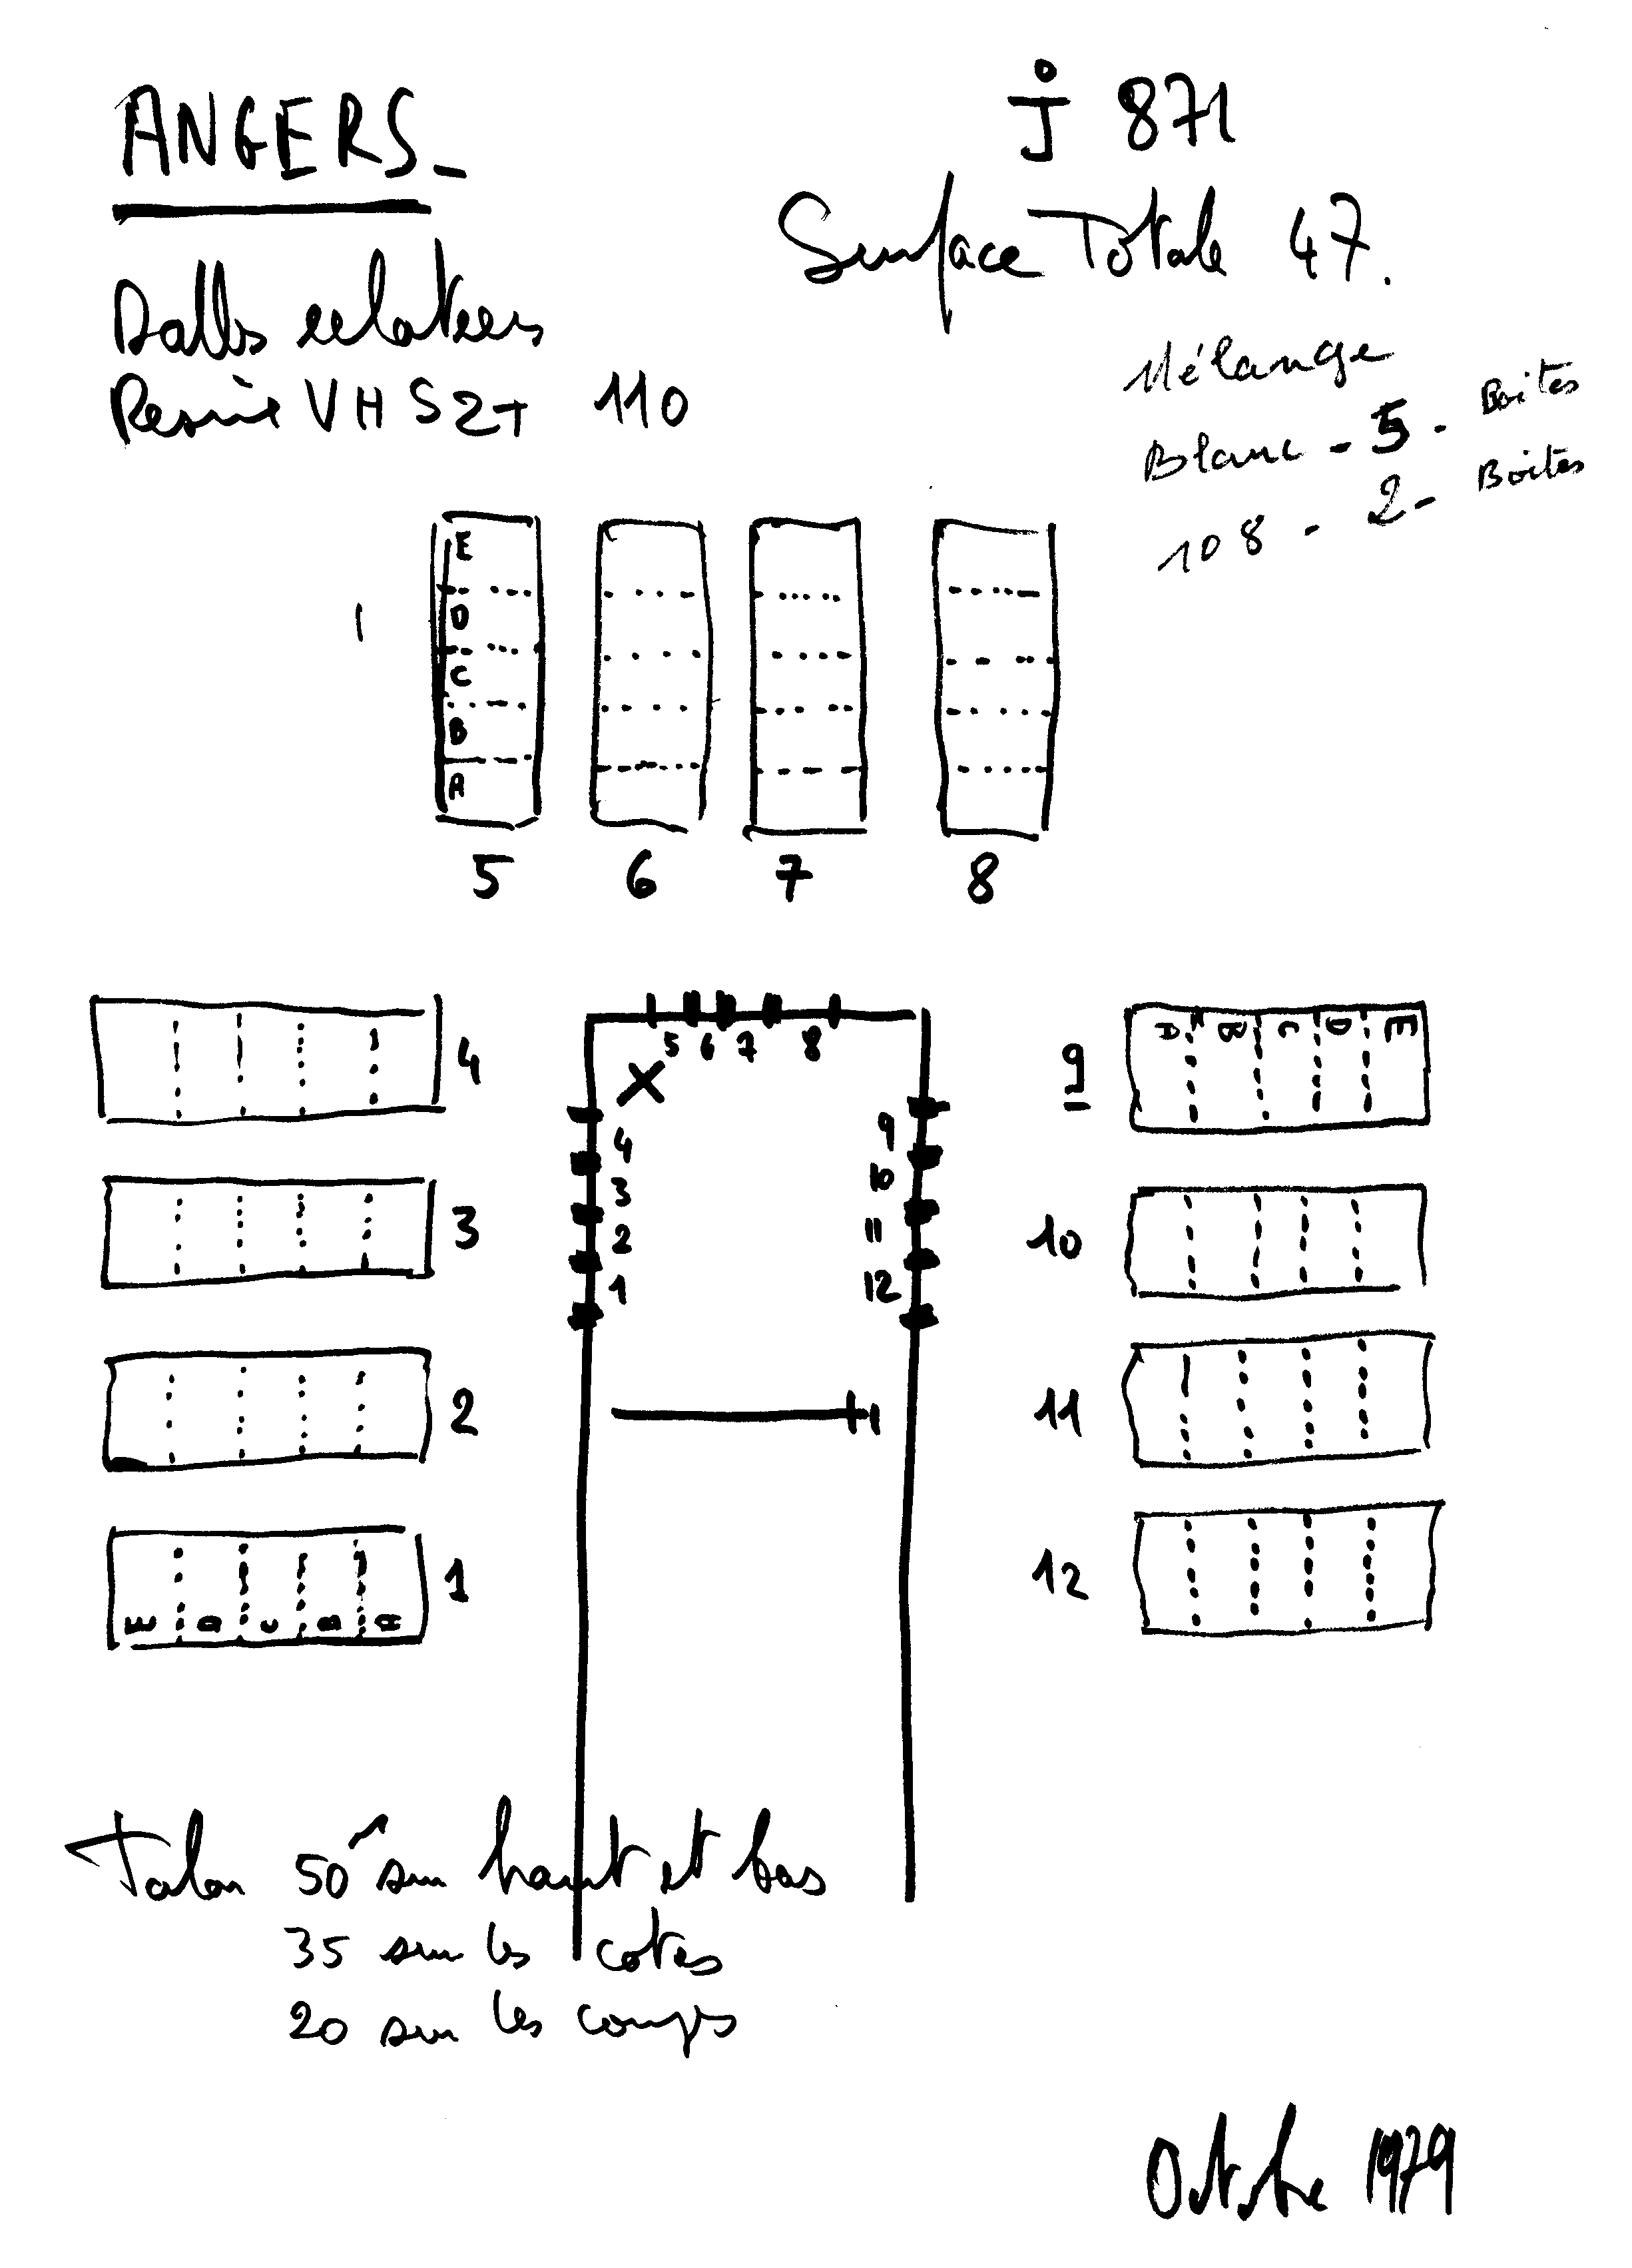 ANGERS_
J 871
Surface Totale 47.
Dalles éclatées
Resine VHS 2T 110
Mélange
Blanc - 5 - Boites
108 - 2 - Boites
E
D
C
B
A
5 6 7 8
4
3
2
1
E D C B A
5 6 7 8
X
4
3
2
1
9
10
11
12
9
A B C D E
10
11
12
Talon 50 sur haut et bas
35 sur les cotés
20 sur les coups
Octobre 1979